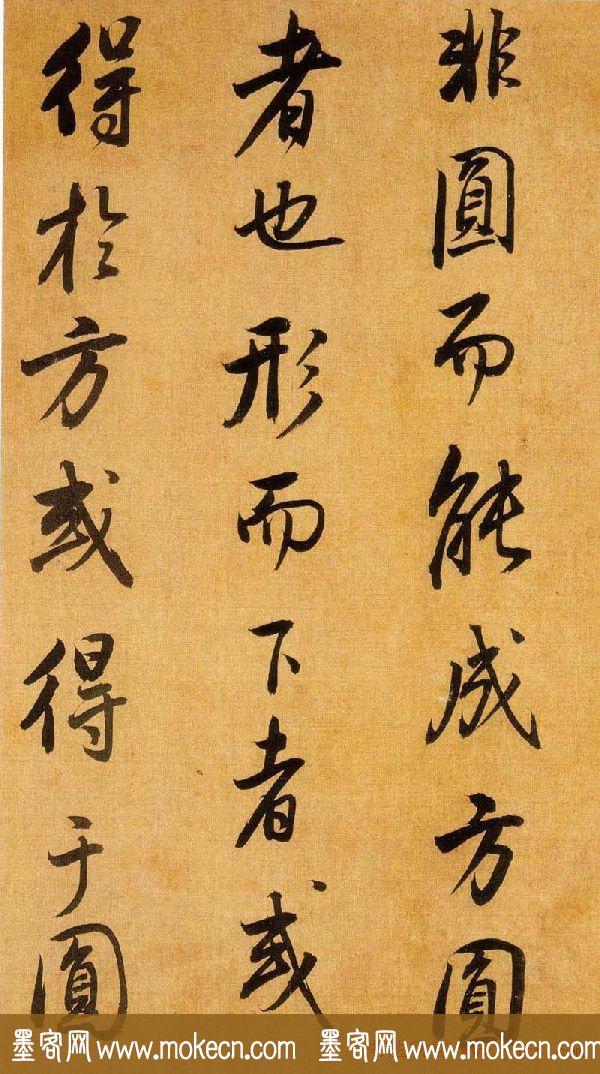 非圓而能成方圓
者也形而下者或
得於方或得于圓
墨客网 www.mokecn.com 墨客网 www.mokecn.com